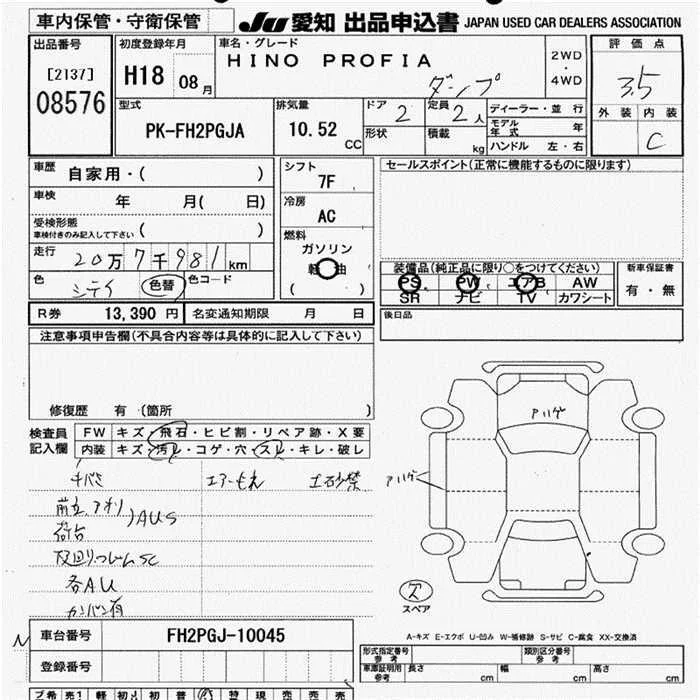 車内保管・守衛保管
JU 愛知 出品申込書 JAPAN USED CAR DEALERS ASSOCIATION
出品番号
[2137]
08576
初度登録年月
H18 08 月
車名・グレード
HINO PROFIA
ダンプ
2WD
・
4WD
評価点
3.5
外装 内装
C
型式
PK-FH2PGJA
排気量
10.52 CC
ドア 2
形状
定員 2 人
積載 kg
ディーラー・並行
モデル年式 年
ハンドル 左・右
車歴 自家用・( )
車検 年 月( 日)
受検形態
車検付きのみ記入して下さい ( )
走行 20万7千981km
色 シティ 色替 色コード
シフト
7F
冷房
AC
燃料
ガソリン
軽油
( )
セールスポイント(正常に機能するものに限ります)
装備品(純正品に限り○をつけてください)
PS PW エアB AW
SR ナビ TV カワシート
新車保証書
有・無
R券 13,390 円 名変通知期限 月 日
後日品
注意事項申告欄(不具合内容等は具体的に記入して下さい)
修復歴 有 (箇所 )
検査員記入欄
FW キズ・飛石・ヒビ割・リペア跡・X要
内装 キズ・汚レ・コゲ・穴・スレ・キレ・破レ
エアーもれ 土砂禁
前立、アオリ
荷台
)AUS
各AU
カンバン有
アハゲ
アハゲ
スペア
A-キズ E-エクボ U-凹み W-補修跡 S-サビ C-腐食 XX-交換済
N
車台番号 FH2PGJ-10045
登録番号
型式指定番号 参考
類別区分番号 参考
車庫証明用 参考 長さ cm 幅 cm 高さ cm